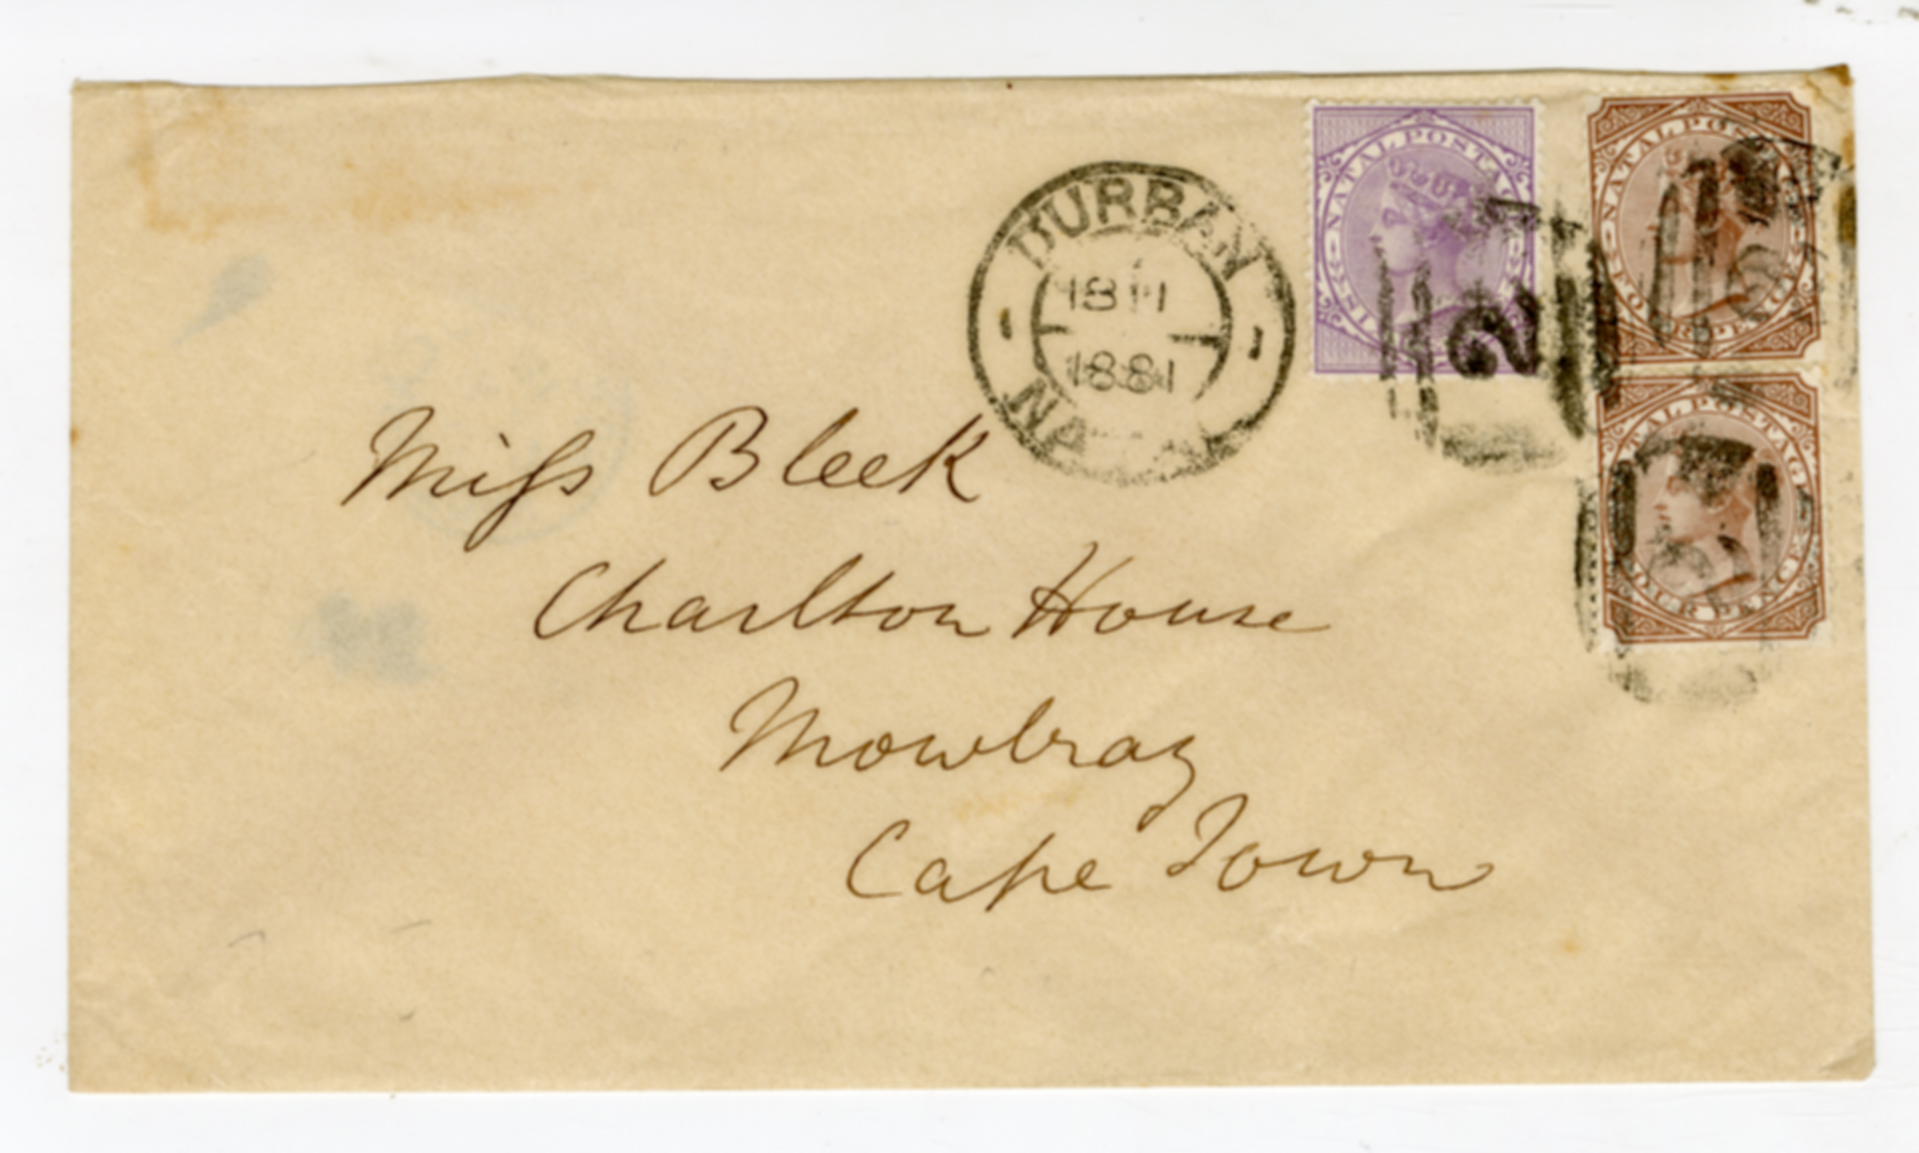 DURBAN
1881
NATAL POSTAGE
NATAL POSTAGE
FOUR PENCE
2
NATAL POSTAGE
FOUR PENCE
Miss Bleek
Charlton House
Mowbray
Cape Town